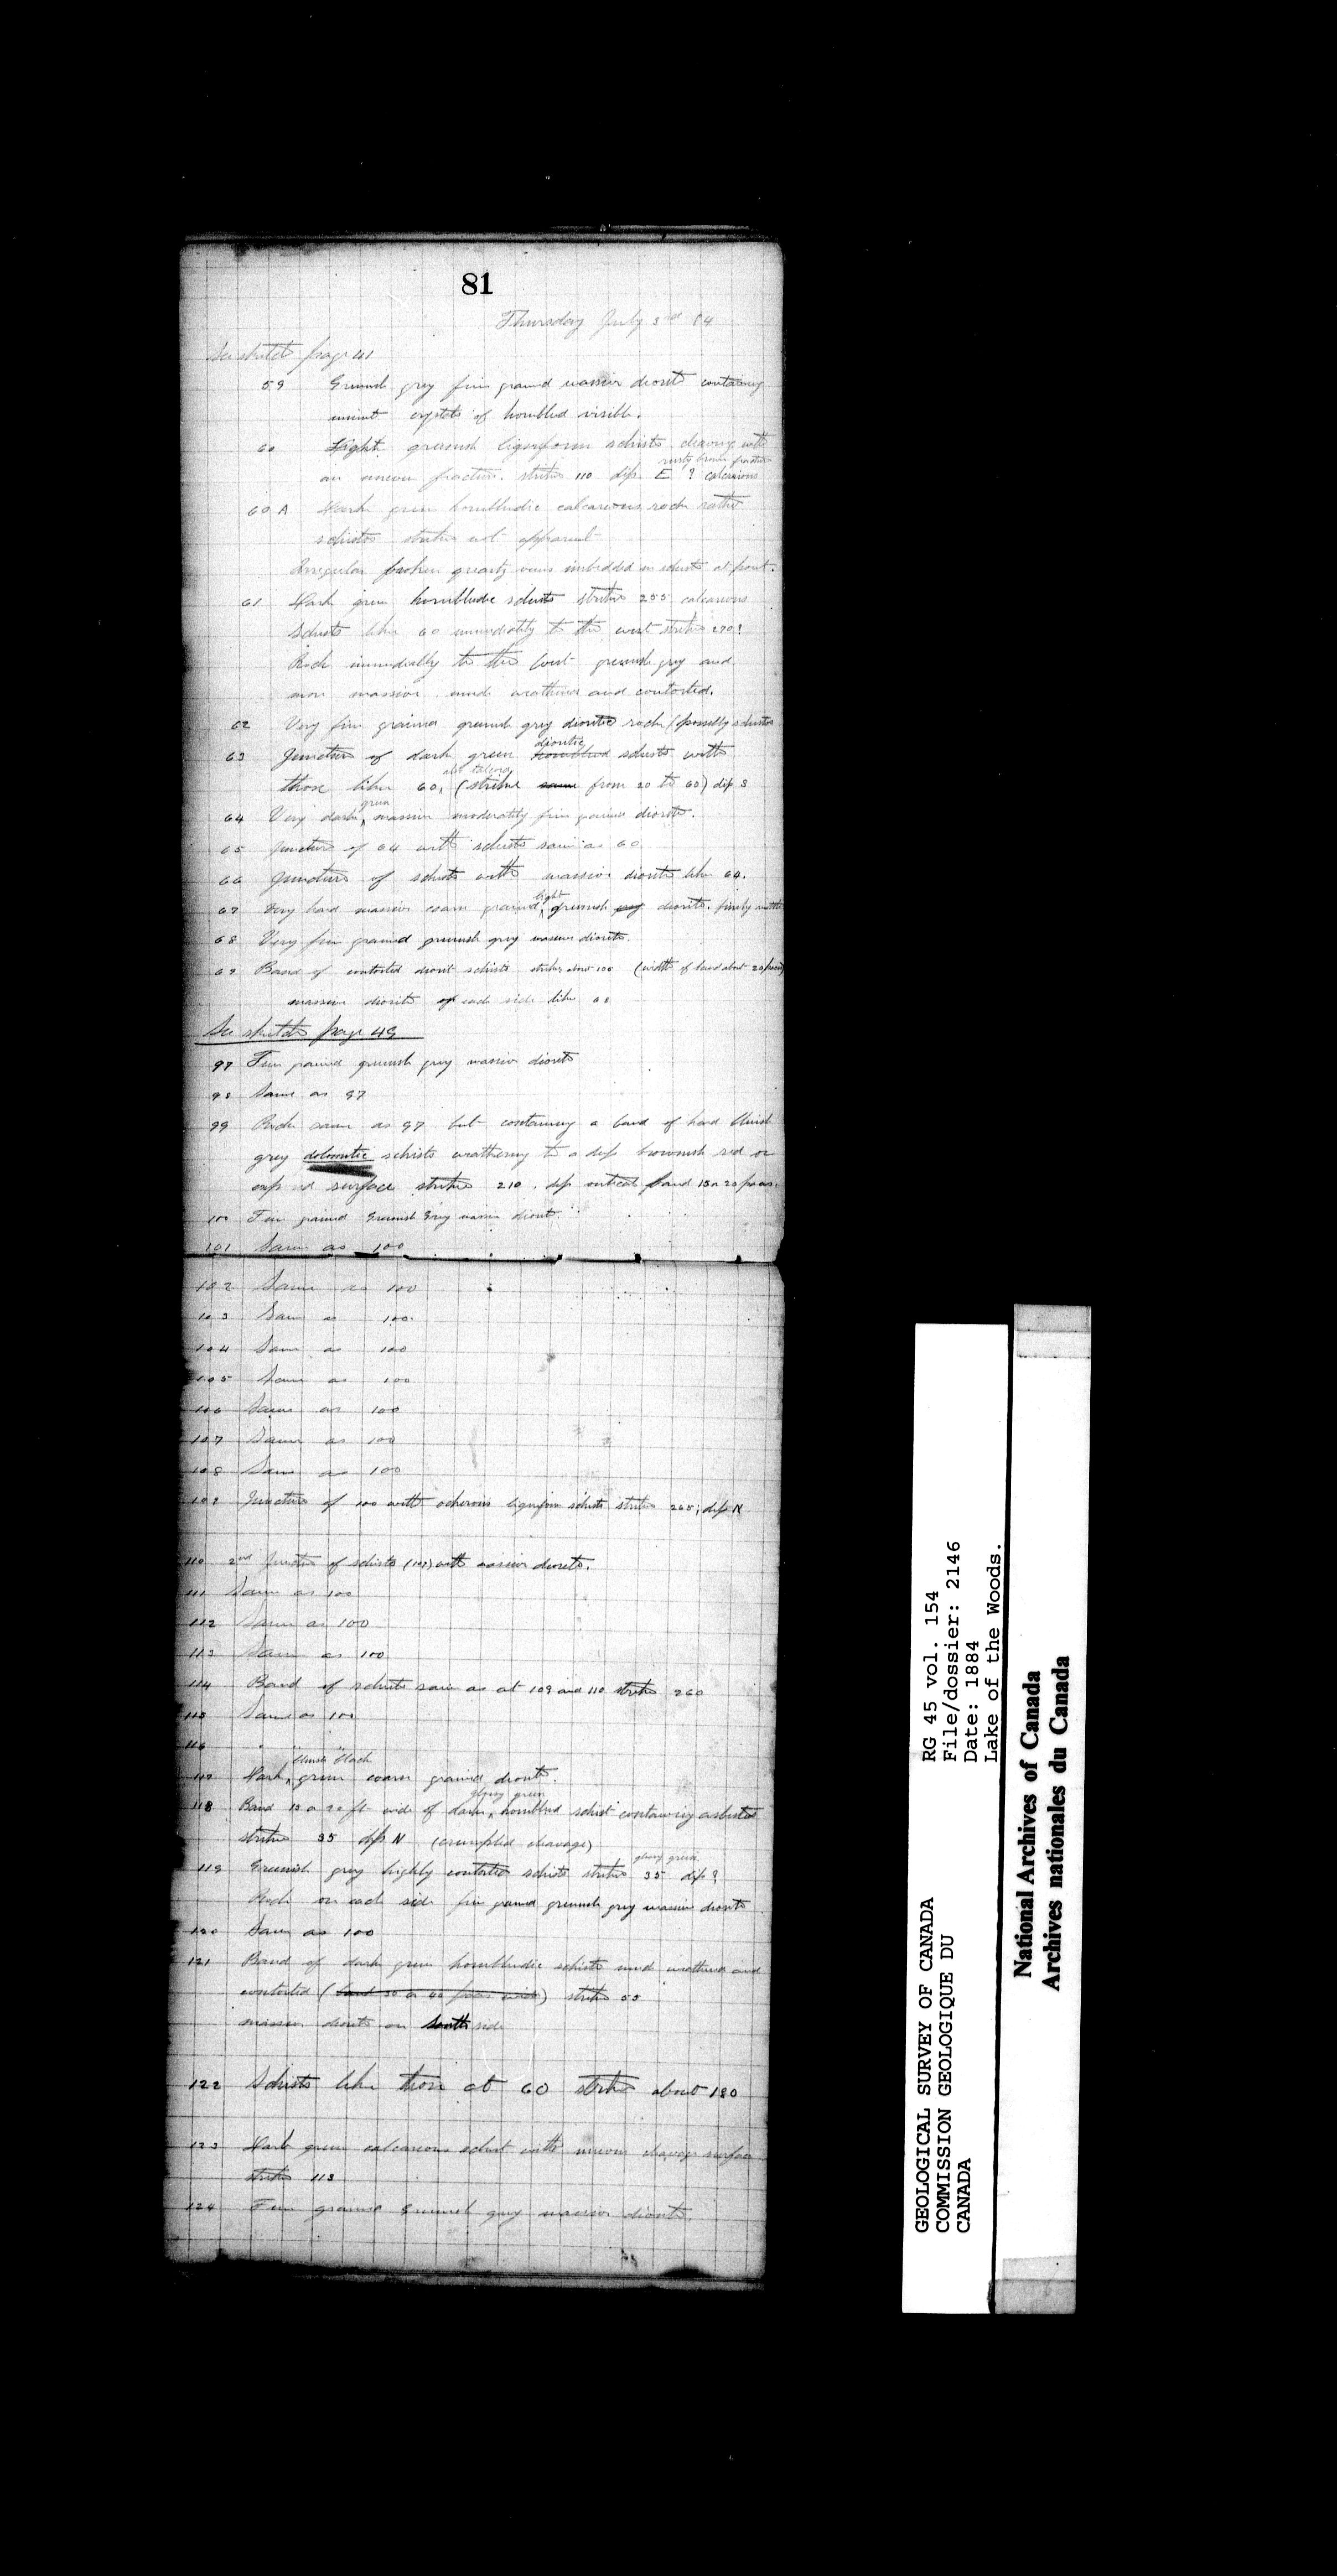 81
Thursday July 3rd 84
See sketch page 41
59 Greenish grey fine grained massive diorite containing
minute crystals of hornblend visible.
60 Light greenish ligniform schists cleaving with
rusty brown fracture
an uneven fracture. strike 110 dip E ? calcareous
60 A Dark green hornblendic calcareous rock rather
schistos strike not apparent
Irregular broken quartz veins imbedded in schists at point.
61 Dark green hornblendic schists strike 255 calcareous
Schists like 60 immediately to the west strike 270?
Rock immediately to the East greenish grey and
more massive. much weathered and contorted.
62 Very fine grained greenish grey dioritic rock (possibly schistos
dioritic
63 Junction of dark green hornblend schists with
those like 60, (strike same from 20 to 60) dip S
green
64 Very dark, massive moderately fine grained diorite.
65 Junction of 64 with schists same as 60
66 Junction of schists with massive diorite like 64.
light
67 Very hard massive coarse grained, greenish grey diorite. finely
68 Very fine grained greenish grey massive diorite.
69 Band of contorted diorit schists strike about 100 (width of band about 20 paces)
massive diorite of each side like 68
See sketch page 49
97 Fine grained greenish grey massive diorite
98 Same as 97
99 Rock same as 97 but containing a band of hard bluish
grey dolomitic schists weathering to a deep brownish red on
exp sd surface strike 210. dip vertical band 15 or 20 paces.
100 Fine grained Greenish Grey massive diorit
101 Same as 100
102 Same as 100
103 Same as 100.
104 Same as 100
105 Same as 100
106 Same as 100
107 Same as 100
108 Same as 100
109 Junction of 100 with ocherous ligniform schists strike 265; dip N
110 2nd Junction of schists (109) with massive diorite.
111 Same as 100
112 Same as 100
113 Same as 100
114 Band of schists same as at 109 and 110 strike 260
115 Same as 100
116 " " "
bluish black
117 Dark, green coarse grained diorite.
glossy green
118 Band 15 or 20 ft wide of dark, hornblend schist containing asbestos
strike 35 dip N (crumpled cleavage)
glossy green
119 Greenish grey highly contorted schists strike 35 dip?
Rock on each side fine grained greenish grey massive diorite
120 Same as 100
121 Band of dark green hornblendic schists much weathered and
contorted (band 30 or 40 paces wide) strike 55
massive diorite on South side
122 Schists like those at 60 strike about 180
123 Dark green calcareous schist with uneven cleavage surface
strike 113
124 Fine grained Greenish grey massive diorite.
GEOLOGICAL SURVEY OF CANADA
COMMISSION GEOLOGIQUE DU
CANADA
RG 45 vol. 154
File/dossier: 2146
Date: 1884
Lake of the Woods.
National Archives of Canada
Archives nationales du Canada